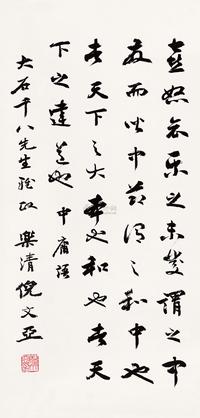 喜怒哀乐之未发谓之中
发而皆中节谓之和中也
者天下之大本也和也者天
下之达道也 中庸语
大石千八先生雅政 乐清倪文亚